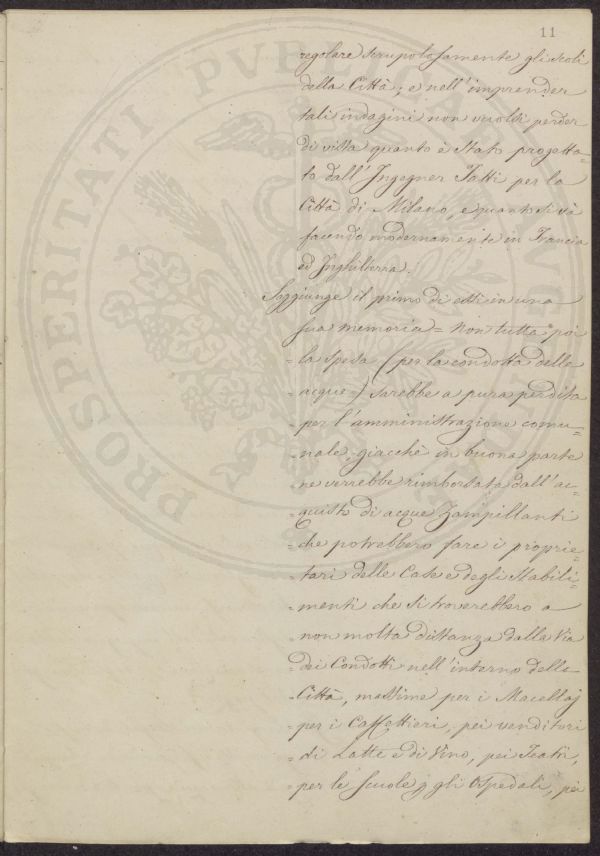 11
regolare scrupolosamente gli scoli
della Città; e nell'imprender
tali indagini non vuolsi perder
di vista quanto è stato progetta=
to dall'Ingegner Tatti per la
Città di Milano, e quanto si và
facendo modernamente in Francia
ed Inghilterra.
Soggiunge il primo di essi in una
sua memoria = Non tutta poi
= la spesa (per la condotta delle
= acque =) sarebbe a pura perdita
= per l'amministrazione comu=
= nale, giacchè in buona parte
= ne verrebbe rimborsata dall'ac=
= quisto di acque zampillanti
= che potrebbero fare i proprie=
= tari delle Case e degli Stabili=
= menti che si troverebbero a
= non molta distanza dalla Via
= dei Condotti nell'interno della
= Città, massime per i Macellaj
= per i Caffettieri, pei venditori
= di Latte e di Vino, pei Teatri,
= per le Scuole, gli Ospedali, pei
PROSPERITATI PVBLICAE AVG